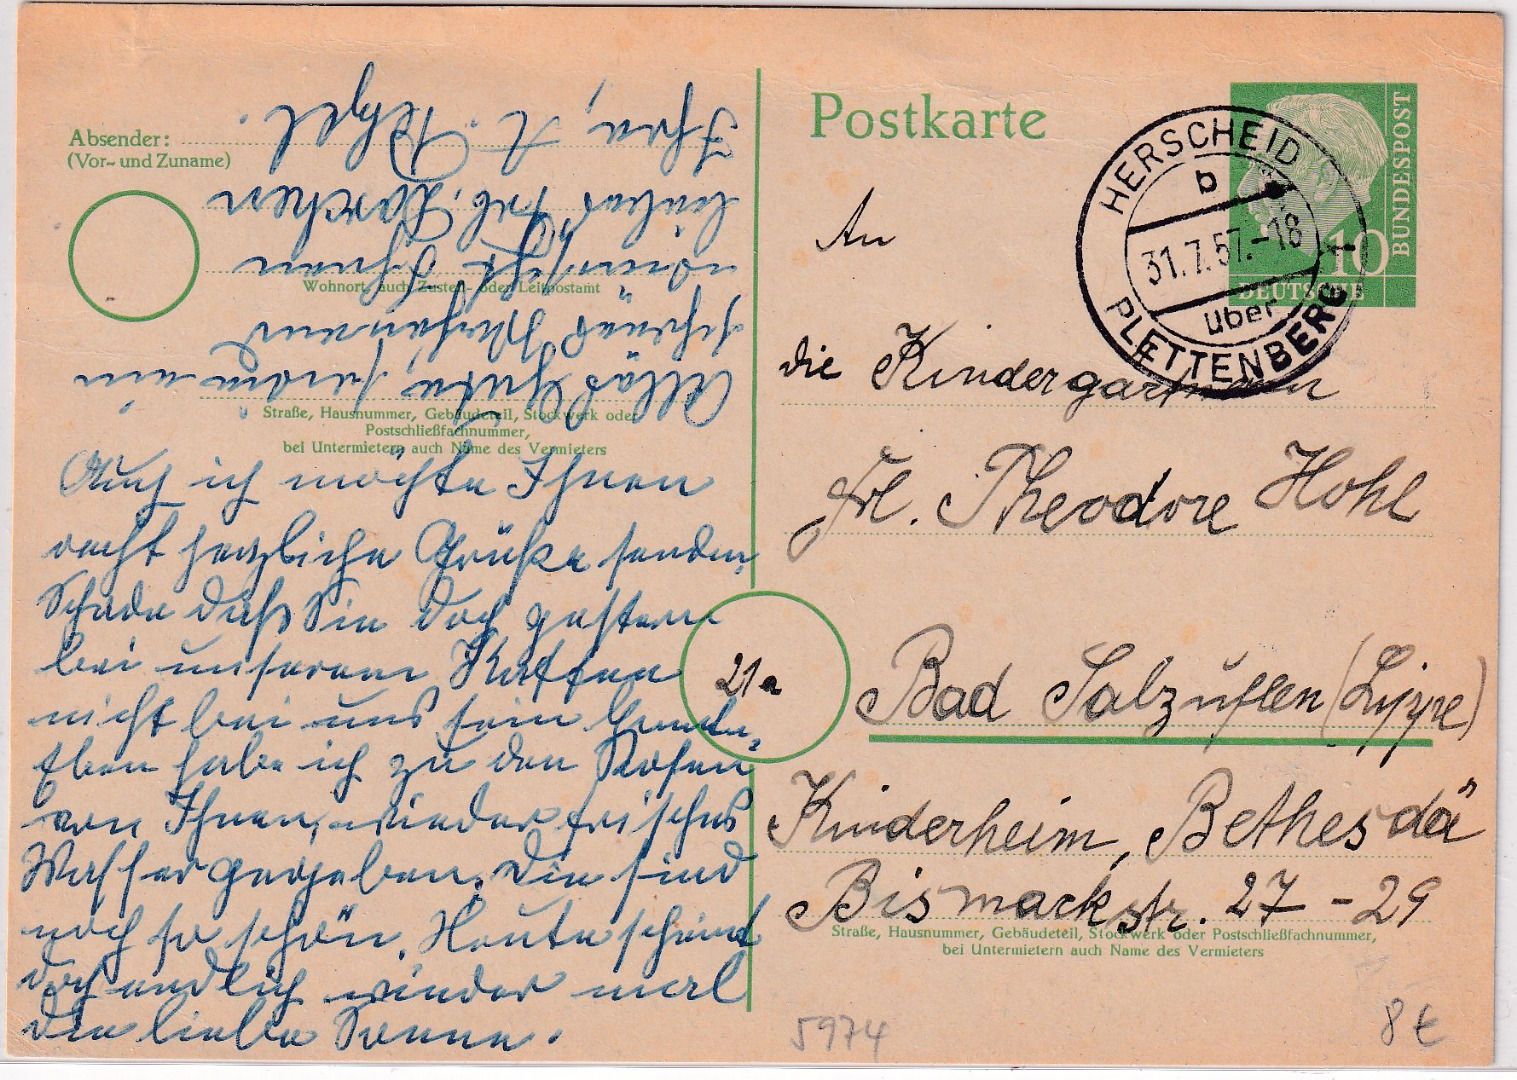 Absender:
(Vor- und Zuname)
Wohnort, auch Zustell- oder Leitpostamt
Straße, Hausnummer, Gebäudeteil, Stockwerk oder
Postschließfachnummer,
bei Untermietern auch Name des Vermieters
Auch ich möchte Ihnen
recht herzliche Grüße senden.
Schade daß Sie doch gestern
bei unserem Kaffee
nicht bei uns sein
Eben habe ich zu den Rosen
von Ihnen, wieder frisches
Wasser gegeben. Die sind
noch so schön. Heute scheint
doch endlich wieder mal
die liebe Sonne.
Alles Gute, sowie ein
schönes
wünscht Ihnen
liebes Frl. Dorchen
Ihre, A.
Postkarte
HERSCHEID
b
31.7.57.-18
über
PLETTENBERG
DEUTSCHE
BUNDESPOST
10
An
die Kindergärtnerin
Frl. Theodore Hohl
21a
Bad Salzuflen (Lippe)
Kinderheim, Bethesda
Bismarckstr. 27 - 29
Straße, Hausnummer, Gebäudeteil, Stockwerk oder Postschließfachnummer,
bei Untermietern auch Name des Vermieters
5974
8€